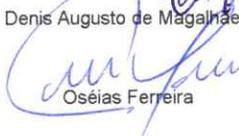 Denis Augusto de Magalhãe
Oséias Ferreira